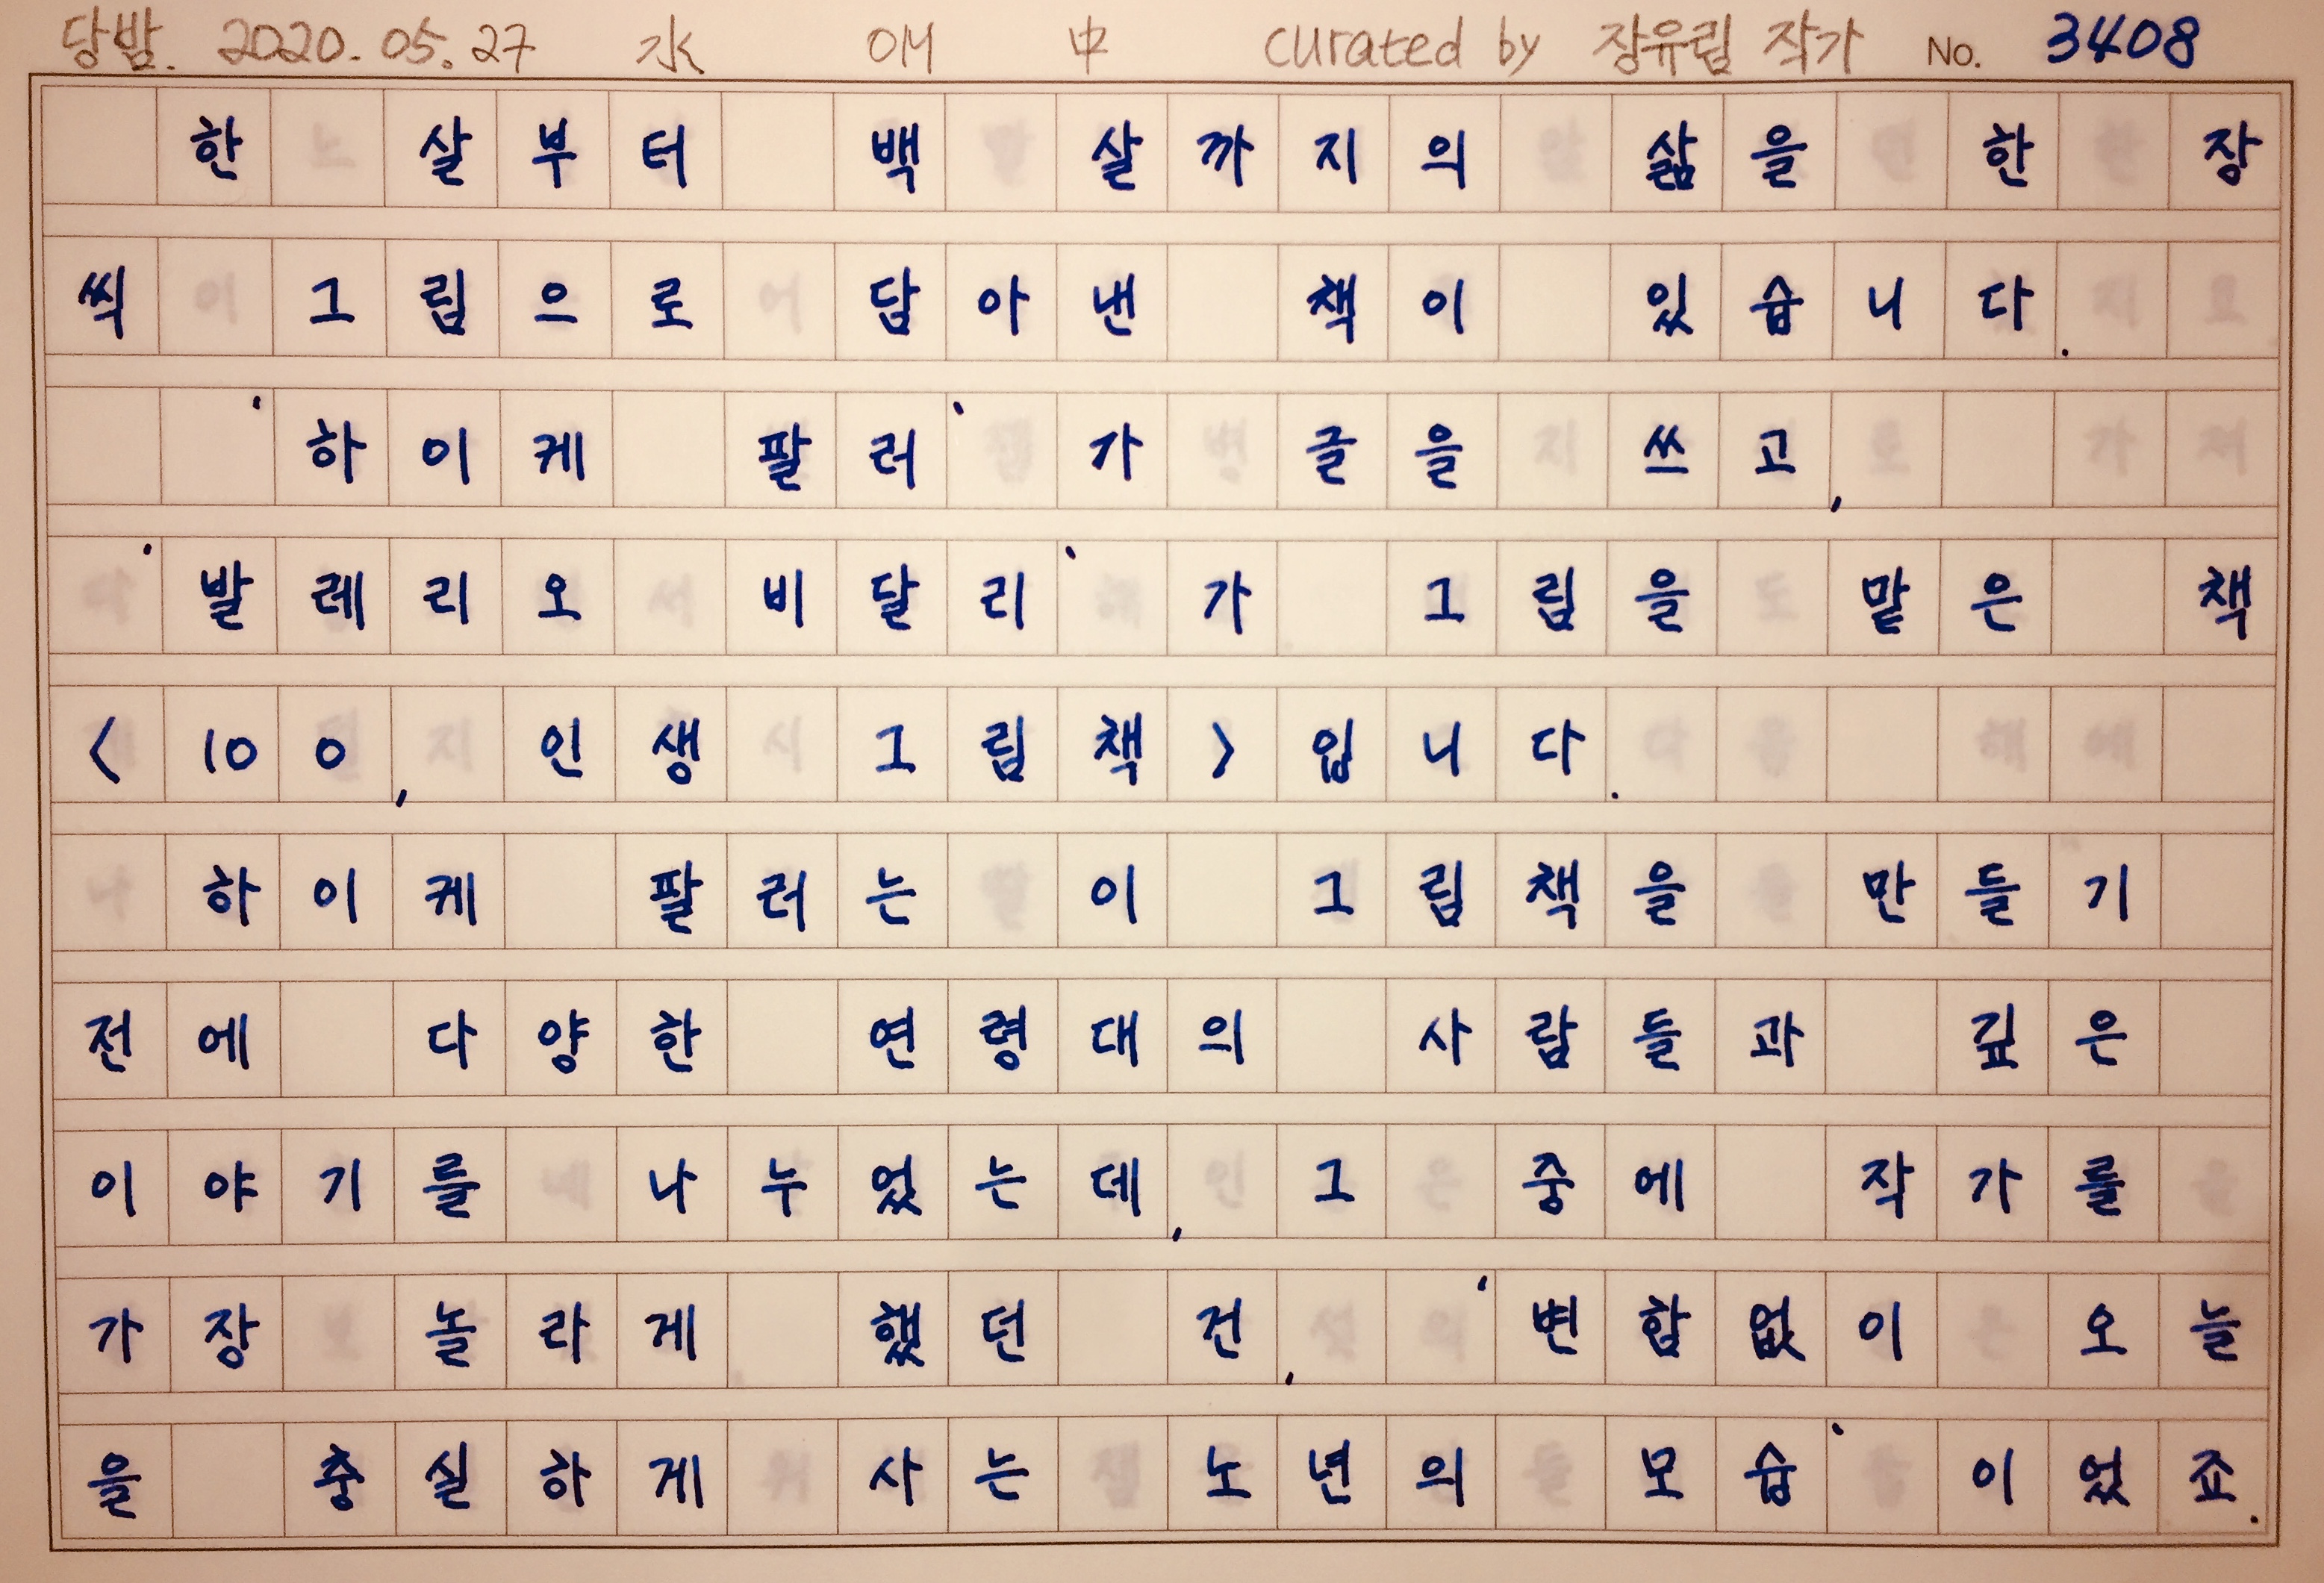 당밤. 2020. 05. 27 水 OM 中 curated by 장유림 작가 No. 3408
한 살부터 백 살까지의 삶을 한 장
씩 그림으로 담아낸 책이 있습니다.
'하이케 팔러'가 글을 쓰고,
'발레리오 비달리'가 그림을 맡은 책
<100, 인생 그림책>입니다.
하이케 팔러는 이 그림책을 만들기
전에 다양한 연령대의 사람들과 깊은
이야기를 나누었는데, 그 중에 작가를
가장 놀라게 했던 건, '변함없이 오늘
을 충실하게 사는 노년의 모습'이었죠.